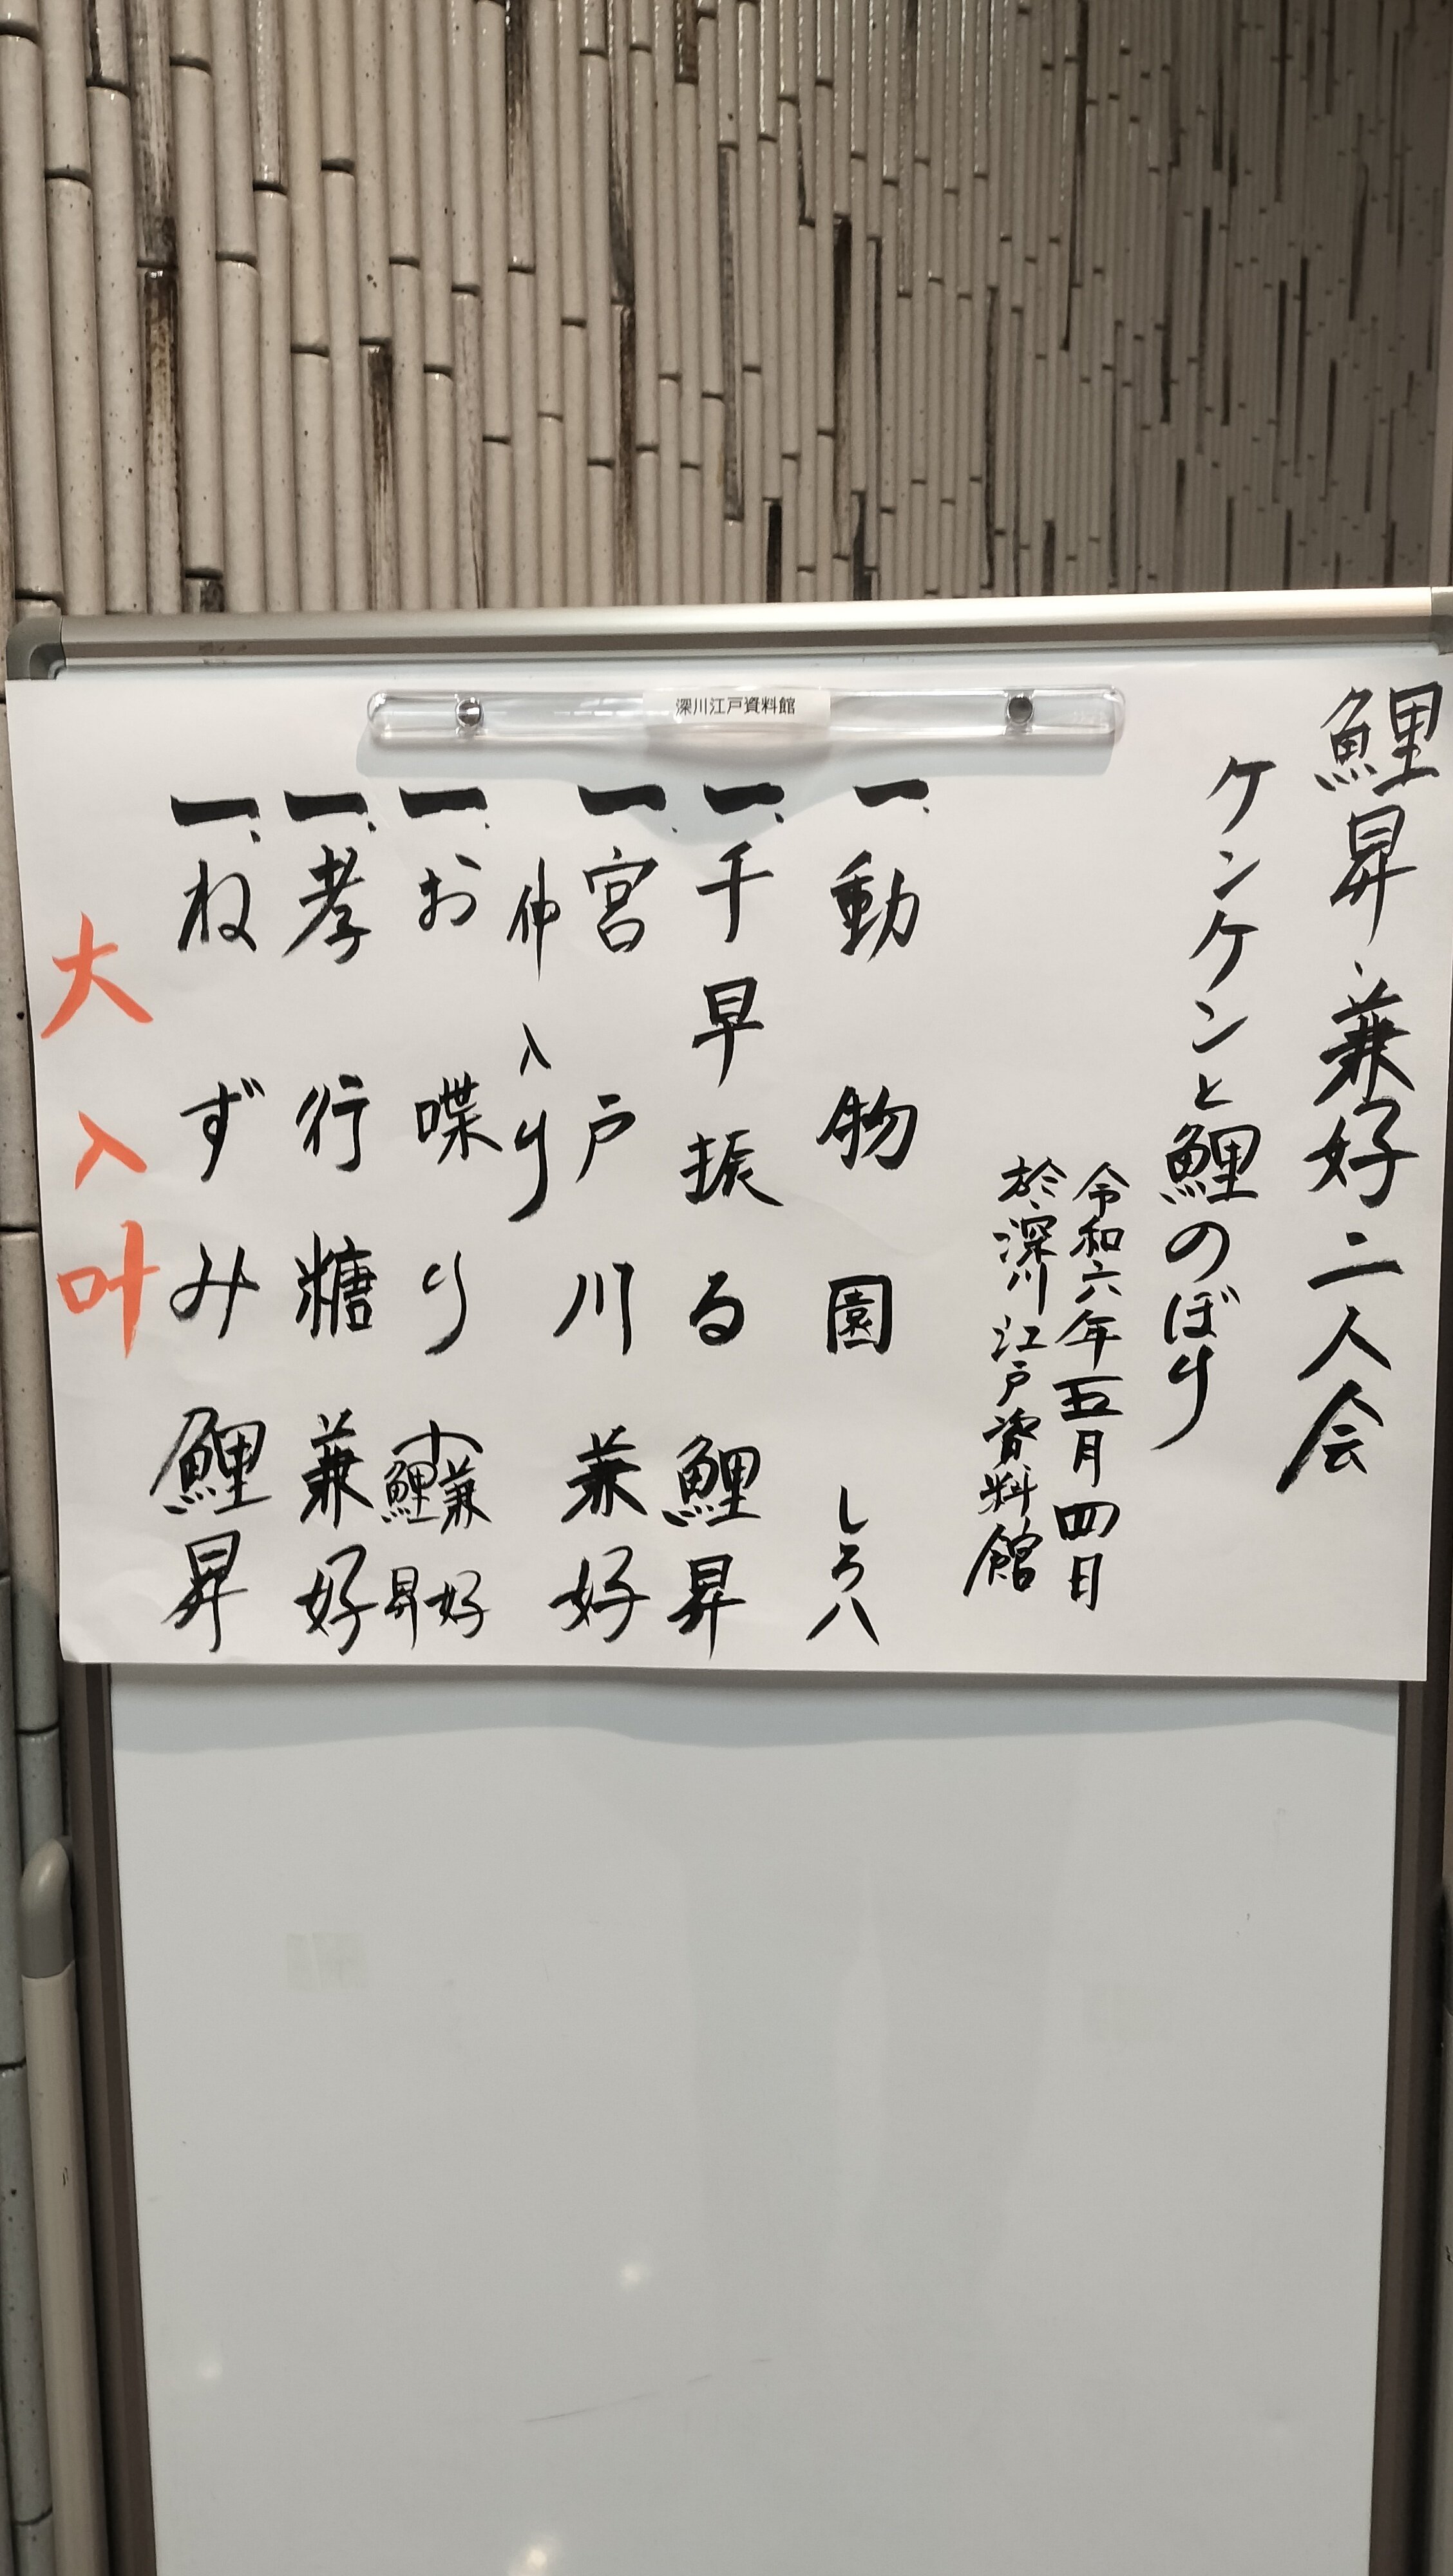 深川江戸資料館
鯉昇、兼好二人会
ケンケンと鯉のぼり
令和六年五月四日
於、深川江戸資料館
一、動物園 しろ八
一、千早振る 鯉昇
一、宮戸川 兼好
仲入り
一、お喋り 兼好 鯉昇
一、孝行糖 兼好
一、ねずみ 鯉昇
大入叶